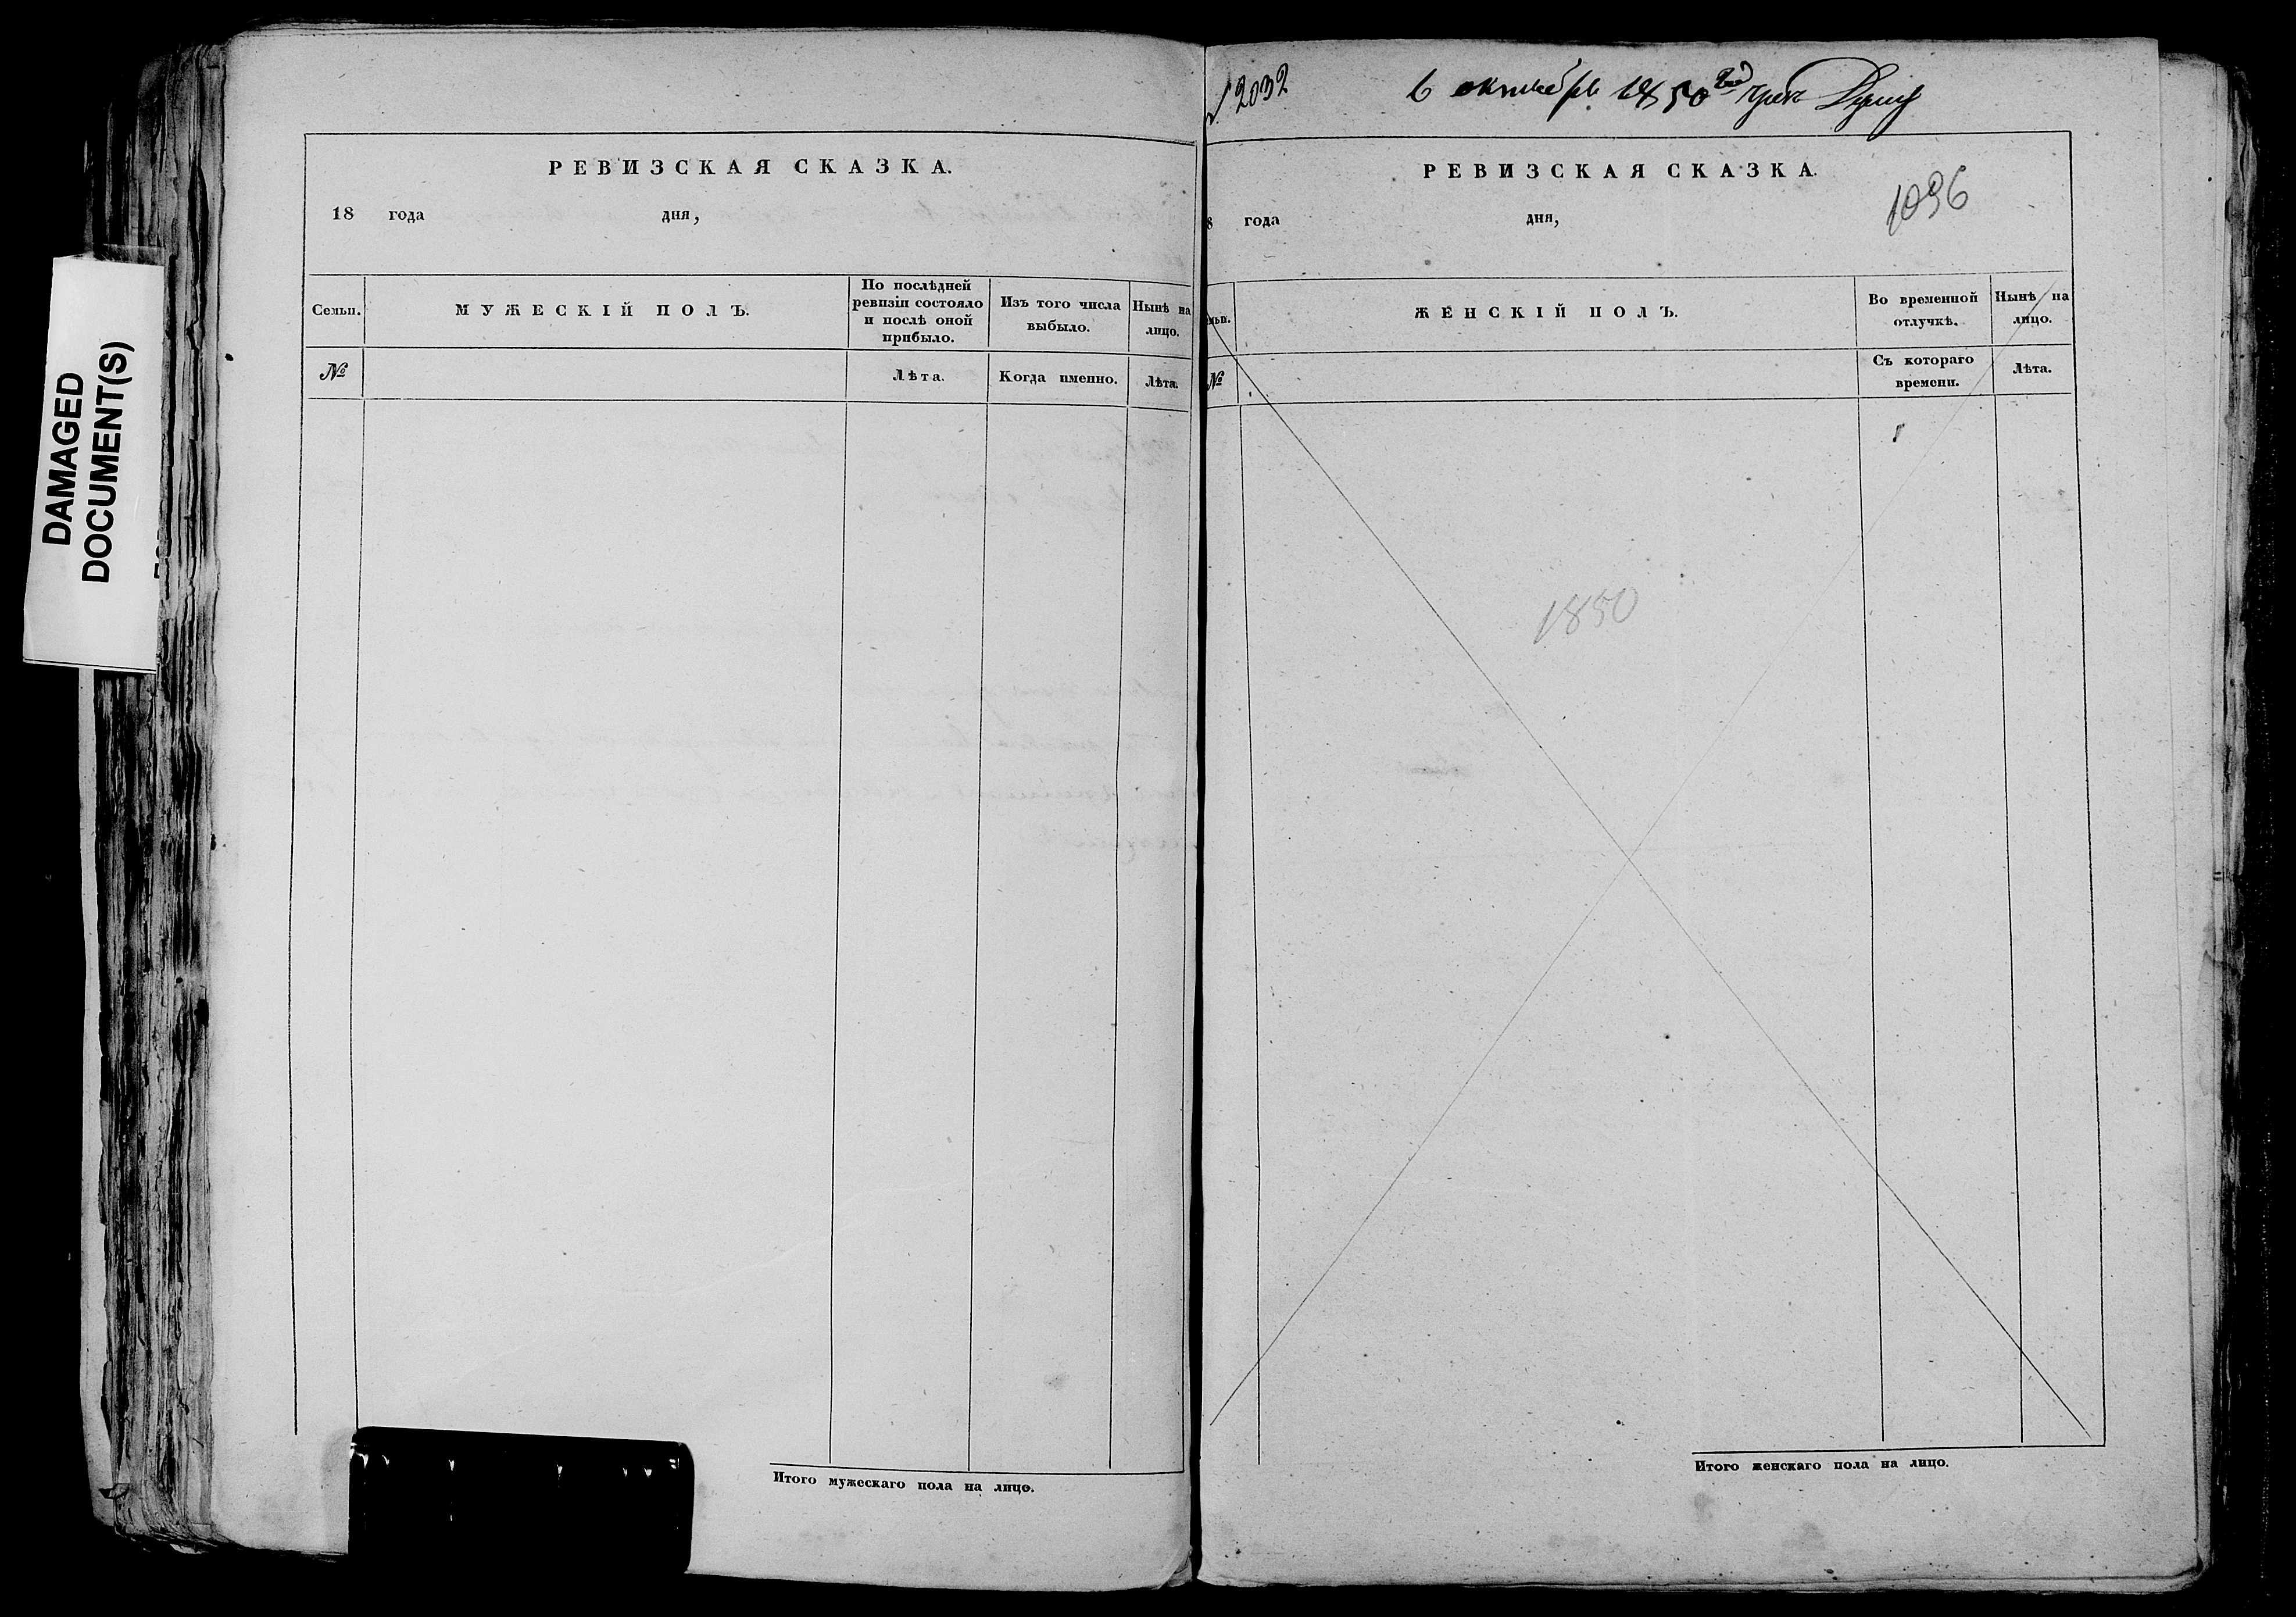 DAMAGED
DOCUMENT(S)
РЕВИЗСКАЯ СКАЗКА.
18 года дня,
Семьи.
МУЖЕСКІЙ ПОЛЪ.
По послѣдней
ревизіи состояло
и послѣ оной
прибыло.
Изъ того числа
выбыло.
Нынѣ на
лицо.
№
Лѣта.
Когда именно.
Лѣта.
Итого мужескаго пола на лицо.
2032
6 октября 1850
РЕВИЗСКАЯ СКАЗКА.
1096
8 года дня,
ьи.
ЖЕНСКІЙ ПОЛЪ.
Во временной
отлучкѣ.
Нынѣ на
лицо.
№
Съ котораго
времени.
Лѣта.
1850
Итого женскаго пола на лицо.